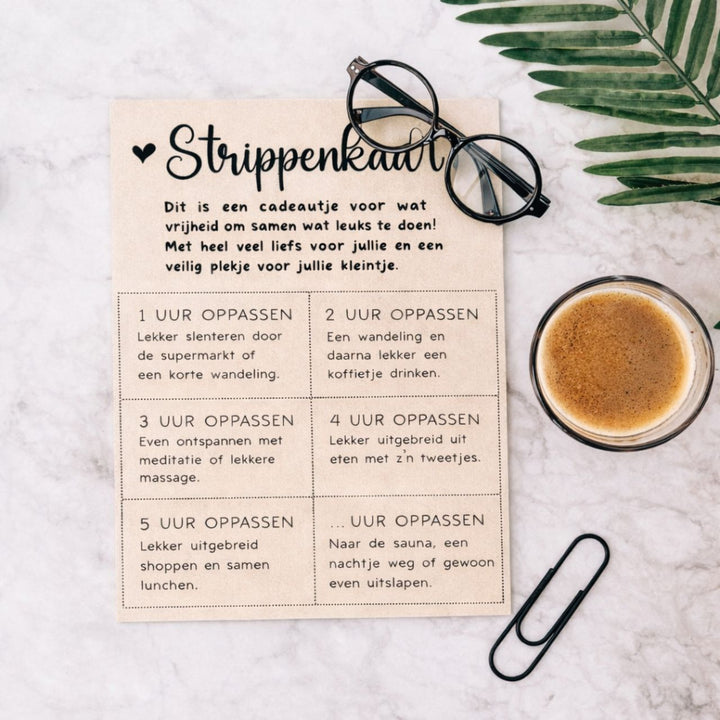 Strippenkaart
Dit is een cadeautje voor wat
vrijheid om samen wat leuks te doen!
Met heel veel liefs voor jullie en een
veilig plekje voor jullie kleintje.
1 UUR OPPASSEN
Lekker slenteren door
de supermarkt of
een korte wandeling.
2 UUR OPPASSEN
Een wandeling en
daarna lekker een
koffietje drinken.
3 UUR OPPASSEN
Even ontspannen met
meditatie of lekkere
massage.
4 UUR OPPASSEN
Lekker uitgebreid uit
eten met z'n tweetjes.
5 UUR OPPASSEN
Lekker uitgebreid
shoppen en samen
lunchen.
... UUR OPPASSEN
Naar de sauna, een
nachtje weg of gewoon
even uitslapen.